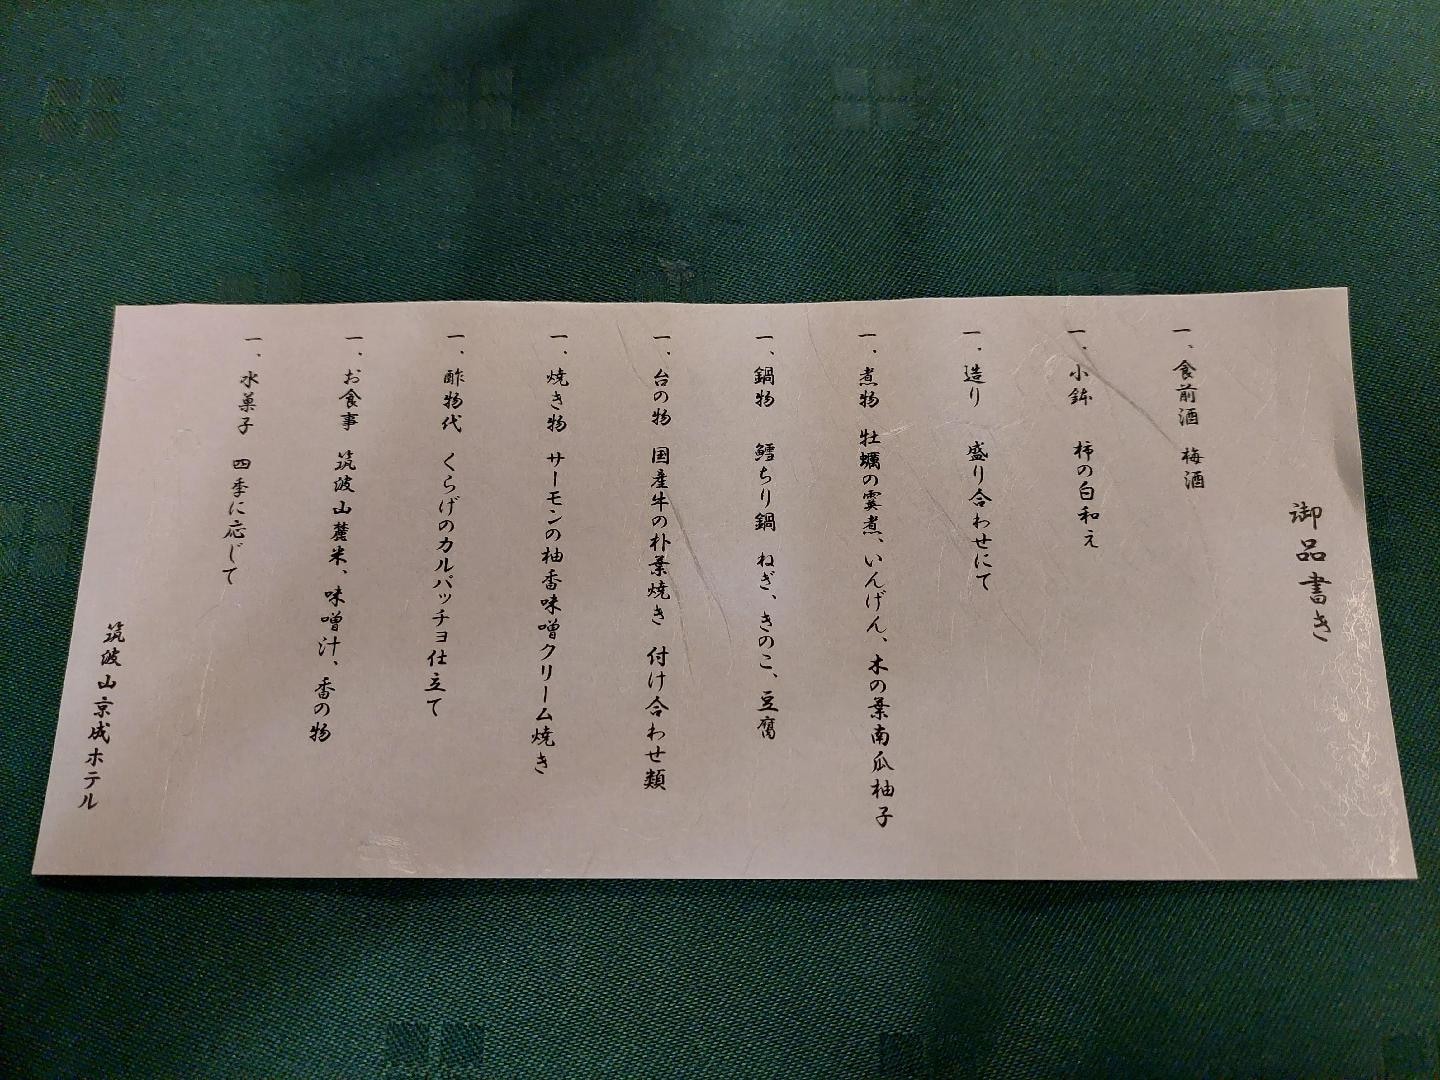 御品書き
一、食前酒 梅酒
一、小鉢 柿の白和え
一、造り 盛り合わせにて
一、煮物 牡蠣の霙煮、いんげん、木の葉南瓜柚子
一、鍋物 鱈ちり鍋 ねぎ、きのこ、豆腐
一、台の物 国産牛の朴葉焼き 付け合わせ類
一、焼き物 サーモンの柚香味噌クリーム焼き
一、酢物代 くらげのカルパッチョ仕立て
一、お食事 筑波山麓米、味噌汁、香の物
一、水菓子 四季に応じて
筑波山京成ホテル